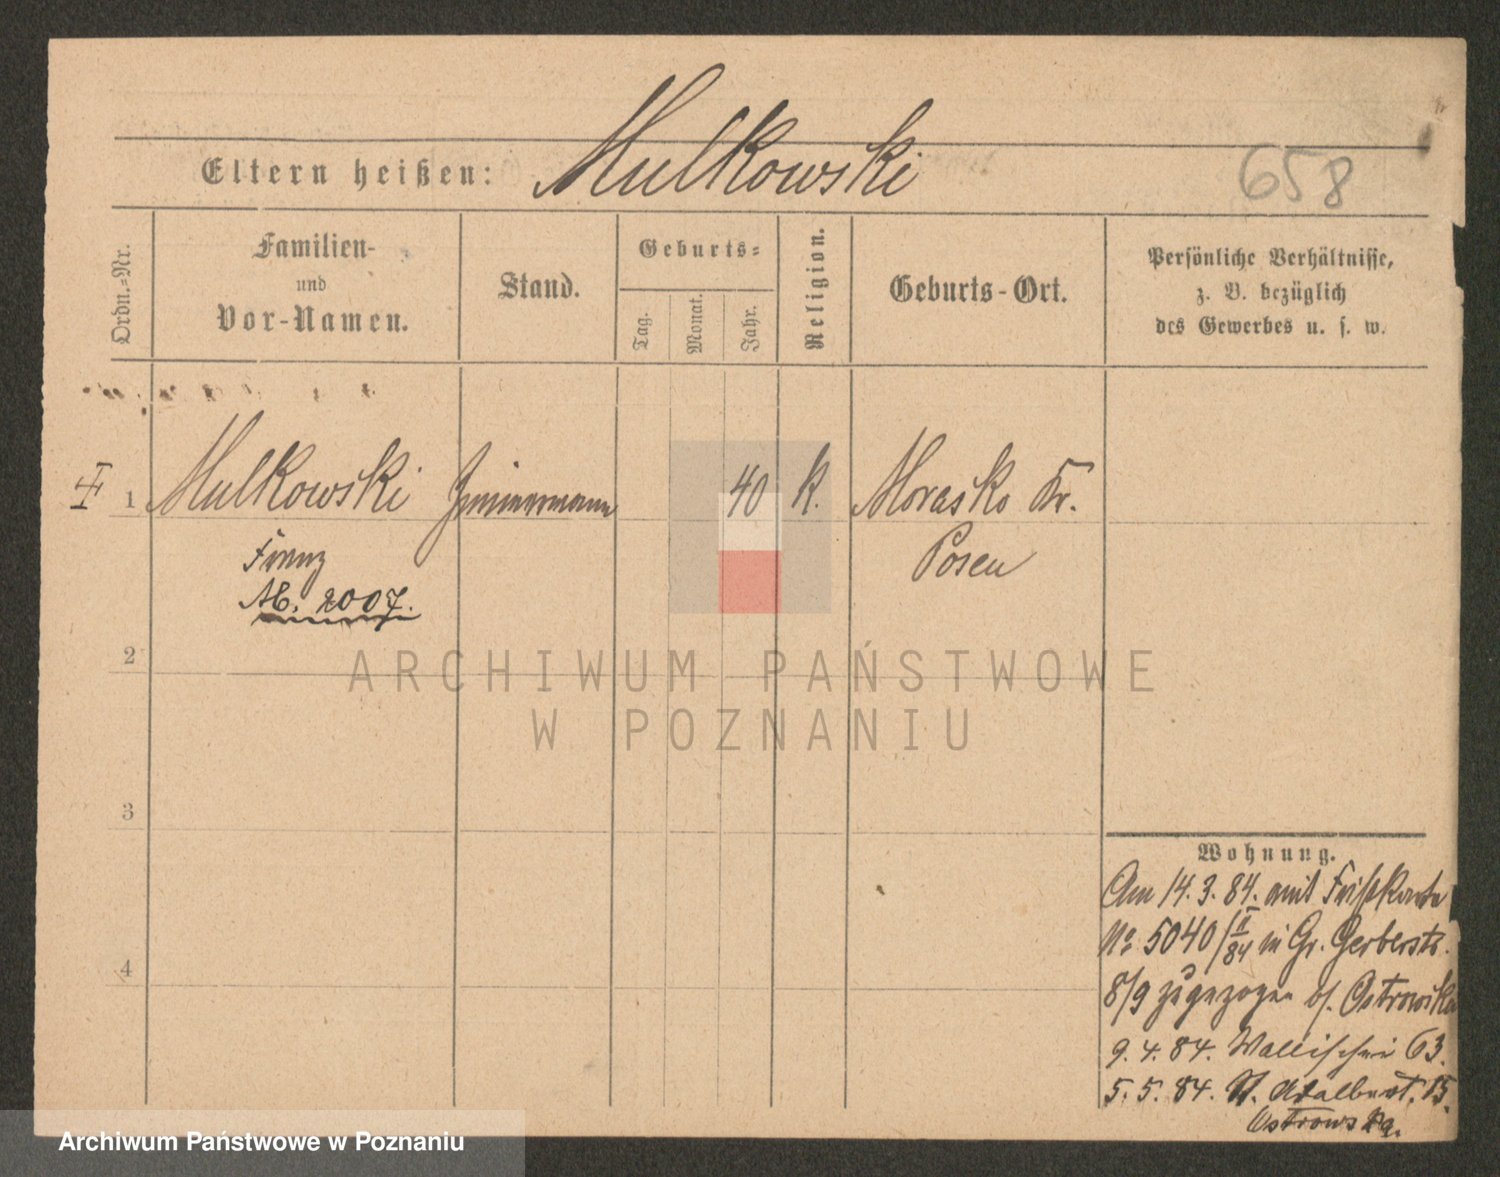 Eltern heißen: Mulkowski
658
Ordn.-Nr.
Familien-
und
Vor-Namen.
Stand.
Geburts-
Tag.
Monat.
Jahr.
Religion.
Geburts-Ort.
Persönliche Verhältnisse,
z. B. bezüglich
des Gewerbes u. s. w.
1 Mulkowski Zimmermann 40 k. Morasko Kr.
Franz Posen
Ab. 2007.
2
ARCHIWUM PAŃSTWOWE
W POZNANIU
3
Wohnung.
Am 14.3.84. mit
No 5040/ II/84 in Gr. Gerberstr.
8/9 zugezogen b/. Ostrowska
4
9.4.84. Wallischei 63.
5.5.84. St. Adalbert. 15.
Ostrowska.
Archiwum Państwowe w Poznaniu